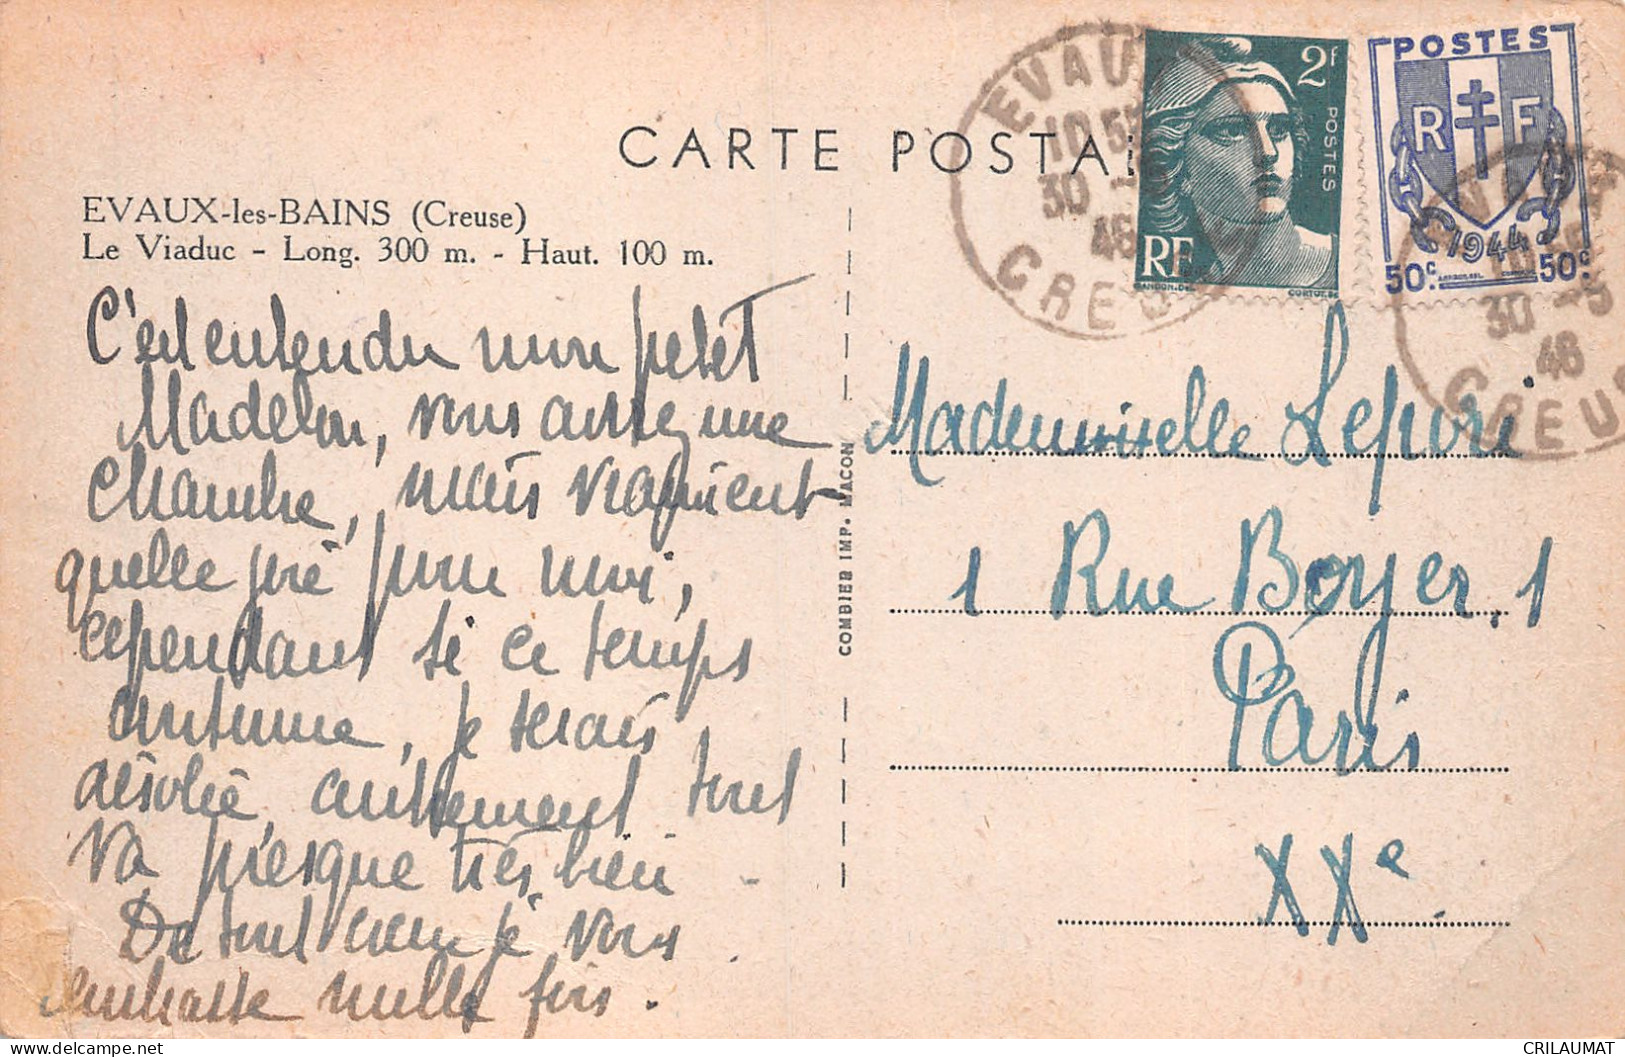 CARTE POSTA
EVAUX-les-BAINS (Creuse)
Le Viaduc - Long. 300 m. - Haut. 100 m.
C'est entendu mon petit
Madelon, vous aurez une
chambre, mais vraiment
quelle joie pour moi,
cependant si ce temps
continue, je serais
désolée, autrement tout
va presque très bien.
De tout cœur je vous
embrasse mille fois.
COMBIER IMP. MACON
EVAUX
10 55
30 -5
46
CREUSE
2f
POSTES
RF
GANDON.DEL.
CORTOT.SC
POSTES
R F
1944
50c. 50c.
EVAUX
10 55
30 -5
46
CREUS
Mademoiselle Lepori
1 Rue Boyer, 1
Paris
XXe.
CRILAUMAT
delcampe.net